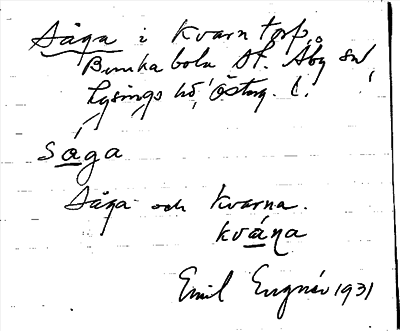 Såga i Kvarntorp,
Bunkabola St. Åby sn,
Lysings hd, Östg. l.
Såga
Såga och Kvarna.
kvána
Emil Eugnér 1931